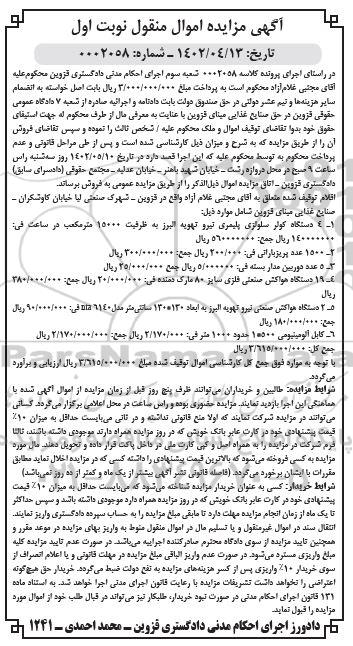 آگهی مزایده اموال منقول نوبت اول
تاریخ: ۱۴۰۲/۰۴/۱۳ ـ شماره: ۰۰۰۲۰۵۸
در راستای اجرای پرونده کلاسه ۰۰۰۲۰۵۸ شعبه سوم اجرای احکام مدنی دادگستری قزوین محکوم‌علیه
آقای مجتبی غلام‌آزاد محکوم است به پرداخت مبلغ ۳/۰۰۰/۰۰۰/۰۰۰ ریال بابت اصل خواسته به انضمام
سایر هزینه‌ها و نیم عشر دولتی در حق صندوق دولت بابت دادنامه و اجرائیه صادره از شعبه ۷ دادگاه عمومی
حقوقی قزوین در حق صنایع غذایی مینای قزوین با عنایت به معرفی مال از طرف محکوم له جهت استیفای
حقوق خود بدوا تقاضای توقیف اموال و ملک محکوم علیه / شخص ثالث را نموده و سپس تقاضای فروش
آن را از طریق مزایده که به شرح و میزان ذیل کارشناسی شده است و پس از طی مراحل قانونی و عدم
پرداخت محکوم به توسط محکوم علیه که این اجرا قصد دارد در تاریخ ۱۴۰۲/۰۵/۱۰ روز سه‌شنبه راس
ساعت ۹ صبح در محل دروازه رشت ـ خیابان شهید باهنر ـ خیابان عدلیه ـ مجتمع حقوقی (دادسرای سابق)
دادگستری قزوین ـ اتاق مزایده اموال ذیل‌الذکر را از طریق مزایده عمومی به فروش برساند.
اقلام توقیف شده متعلق به آقای مجتبی غلام آزاد واقع در قزوین ـ شهرک صنعتی لیا خیابان کاوشکران ـ
صنایع غذایی مینای قزوین شامل موارد ذیل:
۱ـ ۴ دستگاه کولر سلولزی پلیمری نیرو تهویه البرز به ظرفیت ۱۵۰۰۰ مترمکعب در ساعت فی:
۱۴۰۰۰۰۰۰۰ ریال جمع: ۵۶۰۰۰۰۰۰۰ ریال
۲ـ ۱۵۰۰ عدد پریز باراتی فی: ۲۰۰/۰۰۰ ریال جمع: ۳۰۰/۰۰۰/۰۰۰ ریال
۳ـ ۵ عدد دوربین مدار بسته فی: ۵/۰۰۰/۰۰۰ ریال جمع: ۲۵/۰۰۰/۰۰۰ ریال
۴ـ ۱۹ دستگاه هواکش صنعتی فلزی سایز ۸۰ مارک دمنده فی: ۲۰/۰۰۰/۰۰۰ ریال جمع: ۳۸۰/۰۰۰/۰۰۰
ریال
۵ـ ۲ دستگاه هواکش صنعتی نیرو تهویه البرز به ابعاد ۱۳۰*۱۳۰ سانتی‌متر مدل ۵۱۴۰ فی: ۹۰/۰۰۰/۰۰۰
ریال جمع: ۱۸۰/۰۰۰/۰۰۰ ریال
۶ـ کابل آلومینیومی ۵۰۰*۱ حدود ۱۰۰۰ متر فی: ۲/۱۷۰/۰۰۰ ریال جمع: ۲/۱۷۰/۰۰۰/۰۰۰ ریال
جمع کل: ۳/۶۱۵/۰۰۰/۰۰۰ ریال
با توجه به موارد فوق جمع کل کارشناسی اموال توقیف شده مبلغ ۳/۶۱۵/۰۰۰/۰۰۰ ریال ارزیابی و برآورد
می‌گردد.
شرایط مزایده: طالبین و خریداران می‌توانند ظرف پنج روز قبل از زمان مزایده از اموال آگهی شده با
هماهنگی این اجرا بازدید نمایند. مزایده حضوری بوده و راس ساعت در محل اعلامی برگزار می‌گردد. کسانی
می‌توانند در مزایده شرکت نمایند که اولا منع قانونی نداشته و در ثانی می‌بایست حداقل به میزان ۱۰٪
قیمت پیشنهادی خود در کارت عابر بانک خویش که در روز مزایده همراه دارند موجودی داشته باشند، ثالثا
فرم شرکت در مزایده را به همراه اصل و کپی کارت ملی در داخل پاکت قرار داده و تحویل دهند. مال مورد
مزایده به کسی فروخته می‌شود که بالاترین قیمت پیشنهادی را داشته کسی که در مزایده اخلال نماید مطابق
مقررات با ایشان برخورد می‌گردد. (فاصله قانونی نشر آگهی بیشتر از یک ماه و کمتر از ده روز نمی‌باشد)
شرایط خریدار: کسی به عنوان خریدار مزایده شناخته می‌شود که می‌بایست حداقل به میزان ۱۰٪ قیمت
پیشنهادی خود در کارت عابر بانک خویش که در روز مزایده همراه دارد موجودی داشته باشد و سپس حداکثر
تا یک ماه از زمان انجام مزایده مهلت دارد تا مابقی مبلغ مزایده را به حساب سپرده دادگستری واریز نمایند.
انتقال سند در اموال غیرمنقول و یا تسلیم مال در اموال منقول منوط به واریز بهای مزایده در موعد مقرر و
همچنین تایید مزایده از سوی دادگاه محترم صادرکننده اجراییه می‌باشد. در صورت عدم تایید مزایده کلیه
مبلغ واریزی مسترد می‌شود. در صورت عدم واریز الباقی مبلغ مزایده در مهلت قانونی و یا اعلام انصراف از
سوی خریدار ۱۰٪ واریزی پس از کسر هزینه‌های مزایده به نفع دولت ضبط می‌گردد. خریدار حق هیچ‌گونه
اعتراضی را نخواهد داشت تشریفات مزایده با رعایت قانون اجرای مدنی اجرا خواهد شد. به استناد ماده
۱۳۱ قانون اجرای احکام مدنی در صورت نبود خریدار، طلبکار نیز می‌تواند در قبال طلب خود از اموال مورد
مزایده را قبول نماید.
دادورز اجرای احکام مدنی دادگستری قزوین ـ محمد احمدی ـ ۱۲۴۱